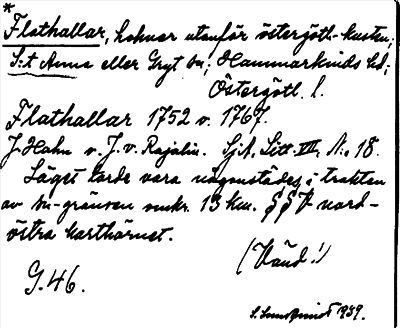 *
Flathallar, holmar utanför östergötl.-kusten;
S:t Anna eller Gryt sn; Hammarkinds hd;
Östergötl. l.
Flathallar 1752 o. 1767.
J. Hahn o. J. v. Rajalin. Sjk. Litt. VII, N:o 18.
Läget torde vara någonstädes i trakten
av sn-gränsen omkr. 13 km. nord-
östra karthörnet.
(Vänd!)
G. 46.
1939.